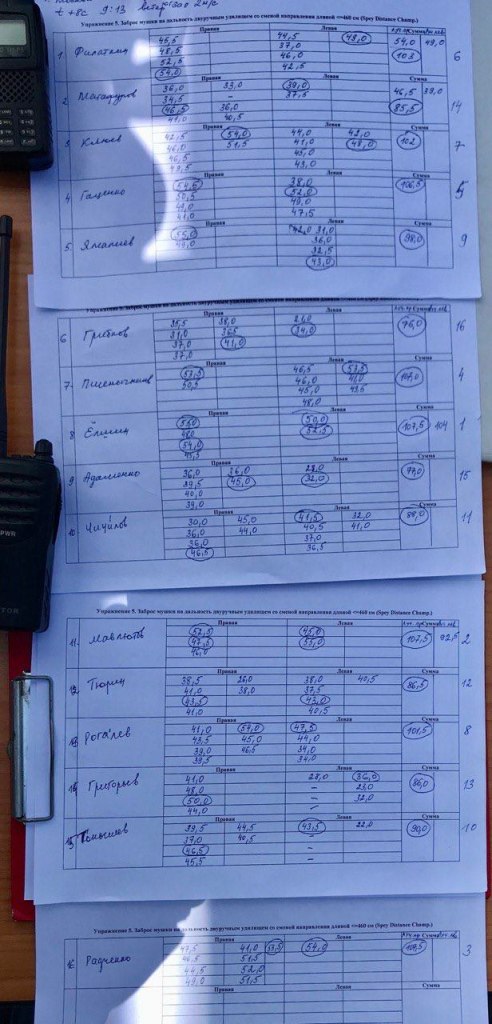 t +8c 9:13 ветер 200 2 м/с
Упражнение 5. Заброс мушки на дальность двуручным удилищем со сменой направления длиной <=460 см (Spey Distance Champ.)
Правая Левая Сумма
1 Филаткин 45,5 44,5 48,0 54,0 49,0 6
48,5 37,0 103
52,5 46,0
54,0 42,5
Правая Левая Сумма
2 36,0 33,0 39,0 46,5 39,0 14
34,5 – 37,5 85,5
46,5 36,0
41,0 40,5
Правая Левая Сумма
3 Клюев 42,5 54,0 44,0 42,0 102 7
46,0 51,5 41,0 48,0
46,5 45,0
49,5 43,0
Правая Левая Сумма
4 Гащенко 54,5 38,0 106,5 5
50,5 52,0
49,0 49,0
41,0 47,5
Правая Левая Сумма
5. 55,0 42,0 31,0 98,0 9
49,0 36,0
32,5
43,0
Правая Левая
6 Грибков 35,5 38,0 26,0 75,0 16
31,0 36,5 34,0
37,0 41,0
37,0
Правая Левая Сумма
7. Пшеничников 53,5 46,5 53,5 107,0 4
50,5 46,0 41,0
45,0 49,5
48,0
Правая Левая Сумма
8 Ёлшин 55,0 50,0 107,5 104 1
48,0 52,5
54,0
45,5
Правая Левая Сумма
9 Адаменко 36,0 26,0 28,0 77,0 15
39,5 45,0 32,0
40,0
39,0
Правая Левая Сумма
10 Чичилов 30,0 45,0 41,5 32,0 88,0 11
36,0 44,0 40,5 41,0
36,0 37,0
46,5 36,5
Упражнение 5. Заброс мушки на дальность двуручным удилищем со сменой направления длиной <=460 см (Spey Distance Champ.)
Правая Левая
11. Мавлютов 52,5 45,0 107,5 92,5 2
47,5 55,0
46,0
Правая Левая Сумма
12 Тюрин 38,5 26,0 38,0 40,5 86,5 12
41,0 38,0 37,5
43,5 43,0
41,0 40,5
Правая Левая Сумма
13 Рогалев 41,0 54,0 47,5 101,5 8
43,5 45,0 44,0
39,0 46,5 34,0
39,5 34,0
Правая Левая Сумма
14 Григорьев 41,0 28,0 36,0 86,0 13
48,0 – 23,0
50,0 – 32,0
44,0 –
Правая Левая Сумма
15 39,5 44,5 43,5 22,0 90,0 10
37,0 40,5 –
46,5 –
45,5 –
Упражнение 5. Заброс мушки на дальность двуручным удилищем со сменой направления длиной <=460 см (Spey Distance Champ.)
Правая Левая
16 Радченко 47,5 41,0 53,5 54,0 107,5 3
46,5 51,5
44,5 52,0
49,0 51,5